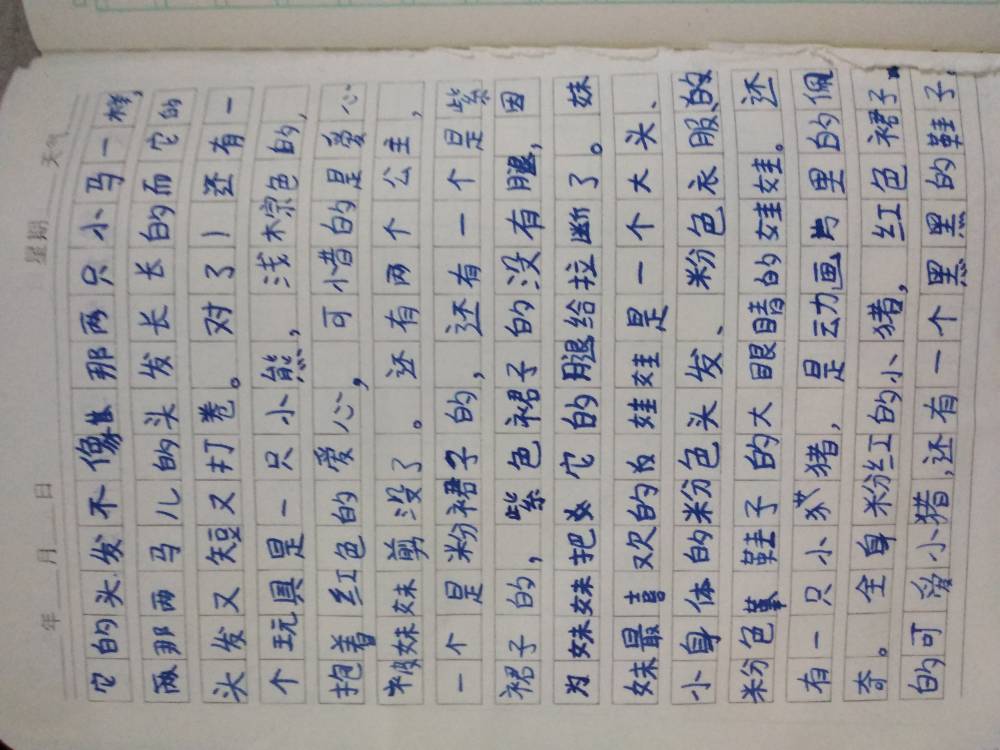 年 月 日 星期 天气
它的头发不像那两只小马一样,
两那两马儿的头发长长的而它的
头发又短又打卷。对了！还有一
个玩具是一只小熊,浅棕色的,
抱着红色的爱心,可惜的是爱心
被妹妹剪没了。还有两个公主,
一个是粉裙子的,还有一个是紫
裙子的,紫色裙子的没有腿,因
为妹妹把它的腿给拉断了。妹
妹最喜欢的娃娃是一个大头、
小身体的粉色头发、粉色衣服的
粉色鞋子的大眼睛的娃娃。还
有一只小猪,是动画里的佩
奇。全身粉红的小猪,红色裙子,
的可爱小猪,还有一个黑黑的鞋子,